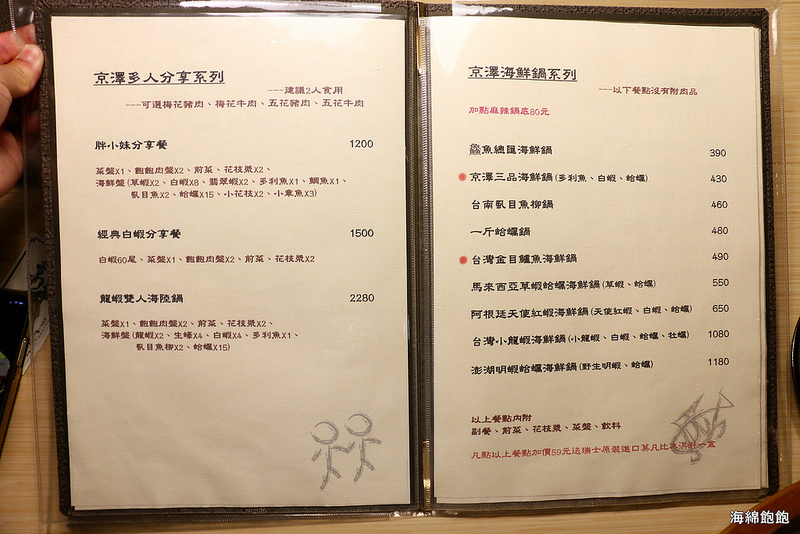 京澤多人分享系列
---建議2人食用
---可選梅花豬肉、梅花牛肉、五花豬肉、五花牛肉
胖小妹分享餐 1200
菜盤X1、飽飽肉盤X2、前菜、花枝漿X2、
海鮮盤(草蝦X2、白蝦X8、翡翠蝦X2、多利魚X1、鯛魚X1、
虱目魚X2、蛤蠣X15、小花枝X2、小章魚X3)
經典白蝦分享餐 1500
白蝦60尾、菜盤X1、飽飽肉盤X2、前菜、花枝漿X2
龍蝦雙人海陸鍋 2280
菜盤X1、飽飽肉盤X2、前菜、花枝漿X2、
海鮮盤(龍蝦X2、生蠔X4、白蝦X4、多利魚X1、
虱目魚柳X2、蛤蠣X15)
京澤海鮮鍋系列
---以下餐點沒有附肉品
加點麻辣鍋底80元
鱻魚總匯海鮮鍋 390
京澤三品海鮮鍋(多利魚、白蝦、蛤蠣) 430
台南虱目魚柳鍋 460
一斤蛤蠣鍋 480
台灣金目鱸魚海鮮鍋 490
馬來西亞草蝦蛤蠣海鮮鍋(草蝦、蛤蠣) 550
阿根廷天使紅蝦海鮮鍋(天使紅蝦、白蝦、蛤蠣) 650
台灣小龍蝦海鮮鍋(小龍蝦、白蝦、蛤蠣、牡蠣) 1080
澎湖明蝦蛤蠣海鮮鍋(野生明蝦、蛤蠣) 1180
以上餐點內附
副餐、前菜、花枝漿、菜盤、飲料
凡點以上餐點加價59元送瑞士原裝進口莫凡比冰淇淋一盒
海綿飽飽